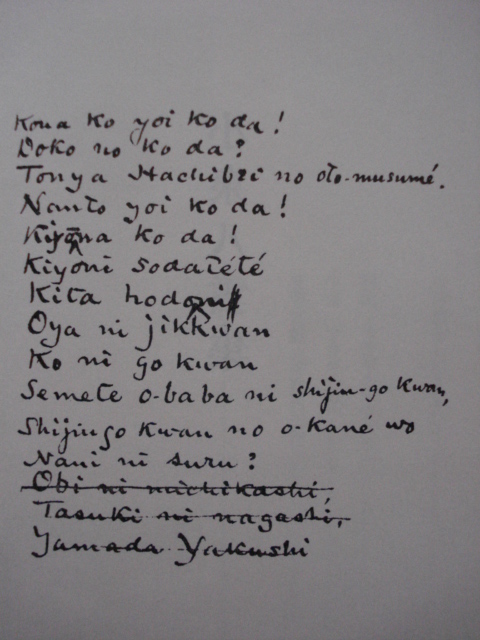 Kona ko yoi ko da!
Doko no ko da?
Tonya Hachibei no oto-musumé.
Nanto yoi ko da!
Kiyōna ko da!
Kiyōni sodatété
Kita hodoni
Oya ni jikkwan
Ko ni go kwan
Semete o-baba ni shijiu-go kwan,
Shijiugo kwan no o-kané wo
Nani ni suru?
Obi ni michikashi,
Tasuki ni nagashi,
Yamada Yakushi